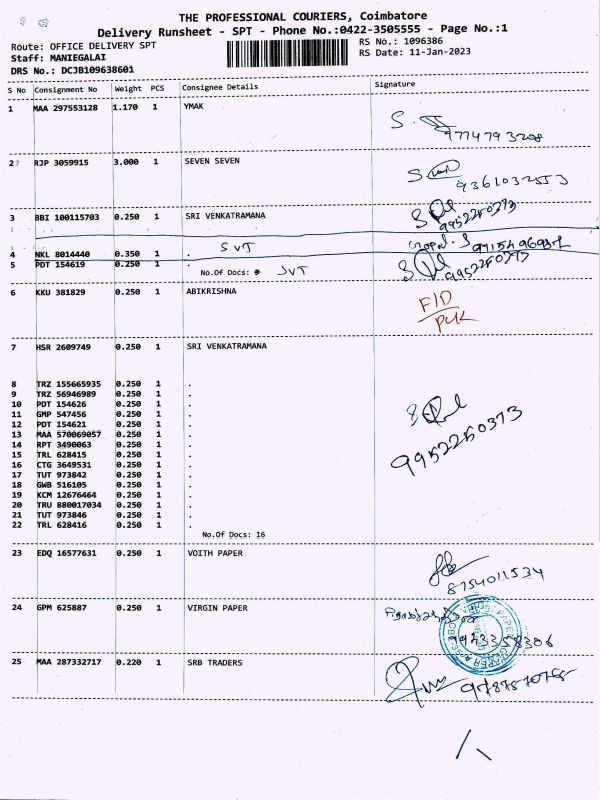 THE PROFESSIONAL COURIERS, Coimbatore
Delivery Runsheet - SPT - Phone No.:0422-3505555 - Page No.:1
Route: OFFICE DELIVERY SPT
RS No.: 1096386
Staff: MANIEGALAI
RS Date: 11-Jan-2023
DRS No.: DCJB109638601
S No Consignment No Weight PCS Consignee Details Signature
1 MAA 297553128 1.170 1 YMAK
9774793208
2 RJP 3059915 3.000 1 SEVEN SEVEN
9361032553
3 BBI 100115703 0.250 1 SRI VENKATRAMANA
9952250373
4 NKL 8014440 0.350 1 . SVT
5 PDT 154619 0.250 1 .
No.Of Docs: SVT 9952250373
6 KKU 381829 0.250 1 ABIKRISHNA
7 HSR 2609749 0.250 1 SRI VENKATRAMANA
8 TRZ 155665935 0.250 1 .
9 TRZ 56946989 0.250 1 .
10 PDT 154626 0.250 1 .
11 GMP 547456 0.250 1 .
12 PDT 154621 0.250 1 .
13 MAA 570069057 0.250 1 .
14 RPT 3490063 0.250 1 .
15 TRL 628415 0.250 1 .
16 CTG 3649531 0.250 1 .
17 TUT 973842 0.250 1 .
18 GWB 516105 0.250 1 .
19 KCM 12676464 0.250 1 .
20 TRU 880017034 0.250 1 .
21 TUT 973846 0.250 1 .
22 TRL 628416 0.250 1 .
No.Of Docs: 16
9952250373
23 EDQ 16577631 0.250 1 VOITH PAPER
8754011534
24 GPM 625887 0.250 1 VIRGIN PAPER
9943358306
25 MAA 287332717 0.220 1 SRB TRADERS